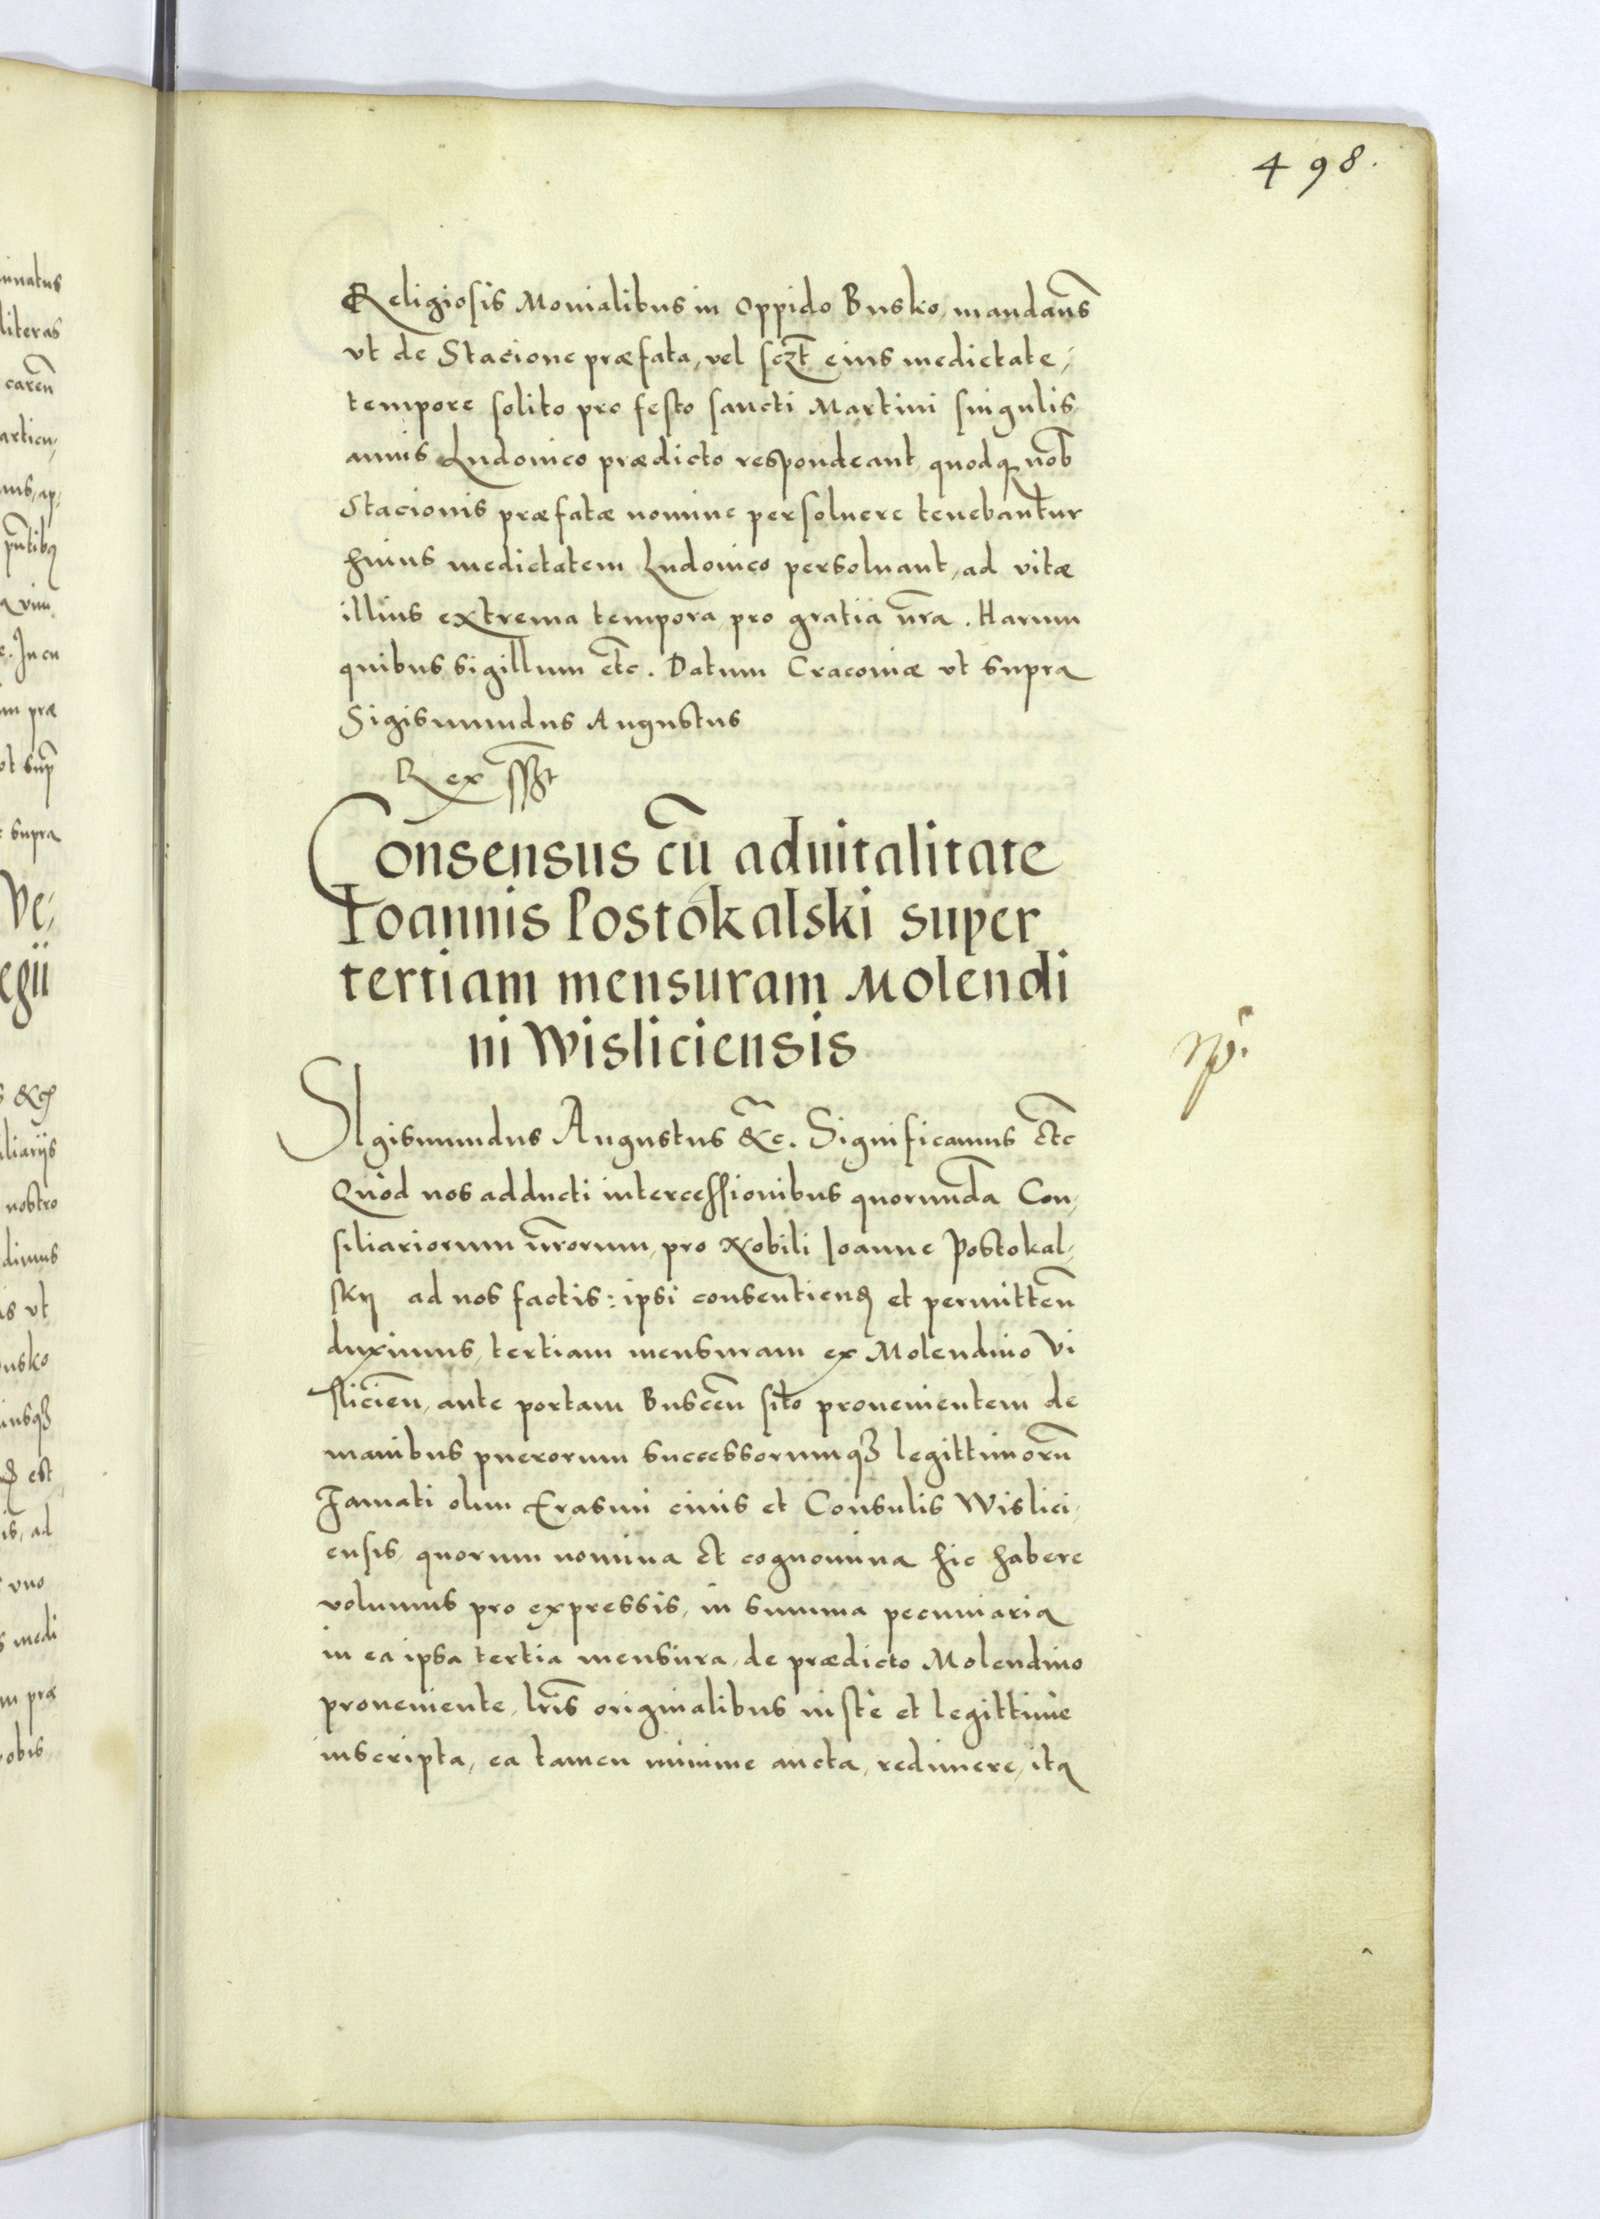 498.
Religiosis Monialibus in Oppido Busko, mandan̄s
vt de Stacione præfata, vel scz̄t eius medietate,
tempore solito pro festo sancti Martini singulis
annis Ludouico prædicto respondeant, quodq; nob̄
Stacionis præfatæ nomine persoluere tenebantur
huius medietatem Ludouico persoluant, ad vitæ
illius extrema tempora pro gratia n̄ra. Harum
quibus sigillum etc̄. Datum Cracouiæ vt supra
Sigismundus Augustus
Rex sszt
Consensus cū aduitalitate
Ioannis Postokalski super
tertiam mensuram Molendi
ni Wisliciensis
SIgismundus Augustus &c̄. Significamus etc̄
Quod nos adducti intercessionibus quorunda̅ Con,
siliariorum n̄rorum, pro Nobili Ioanne Postokal,
skij ad nos factis: ipsi consentiend et permitten̄
duximus, tertiam mensuram ex Molendino Vi
slicien̄, ante portam Buscen̄ sito prouenientem de
manibus puerorum successorumq3 legittimoru̅
Famati olim Erasmi ciuis et Consulis Wislici,
ensis, quorum nomina et cognomina hic habere
volumus pro expressis, in summa pecuniaria
in ea ipsa tertia mensura, de prædicto Molendino
proueniente, lr̄is originalibus iustè et legittimè
inscripta, ea tamen minime aucta, redimere, itq